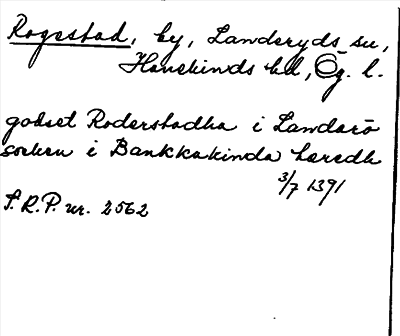 Rogestad, by, Landeryds sn,
Hanekinds hd, Ög. l.
godset Roderstadha i Landarö
socken i Bankkakinda hæredh
3/7 1391
S.R.P. nr. 2562